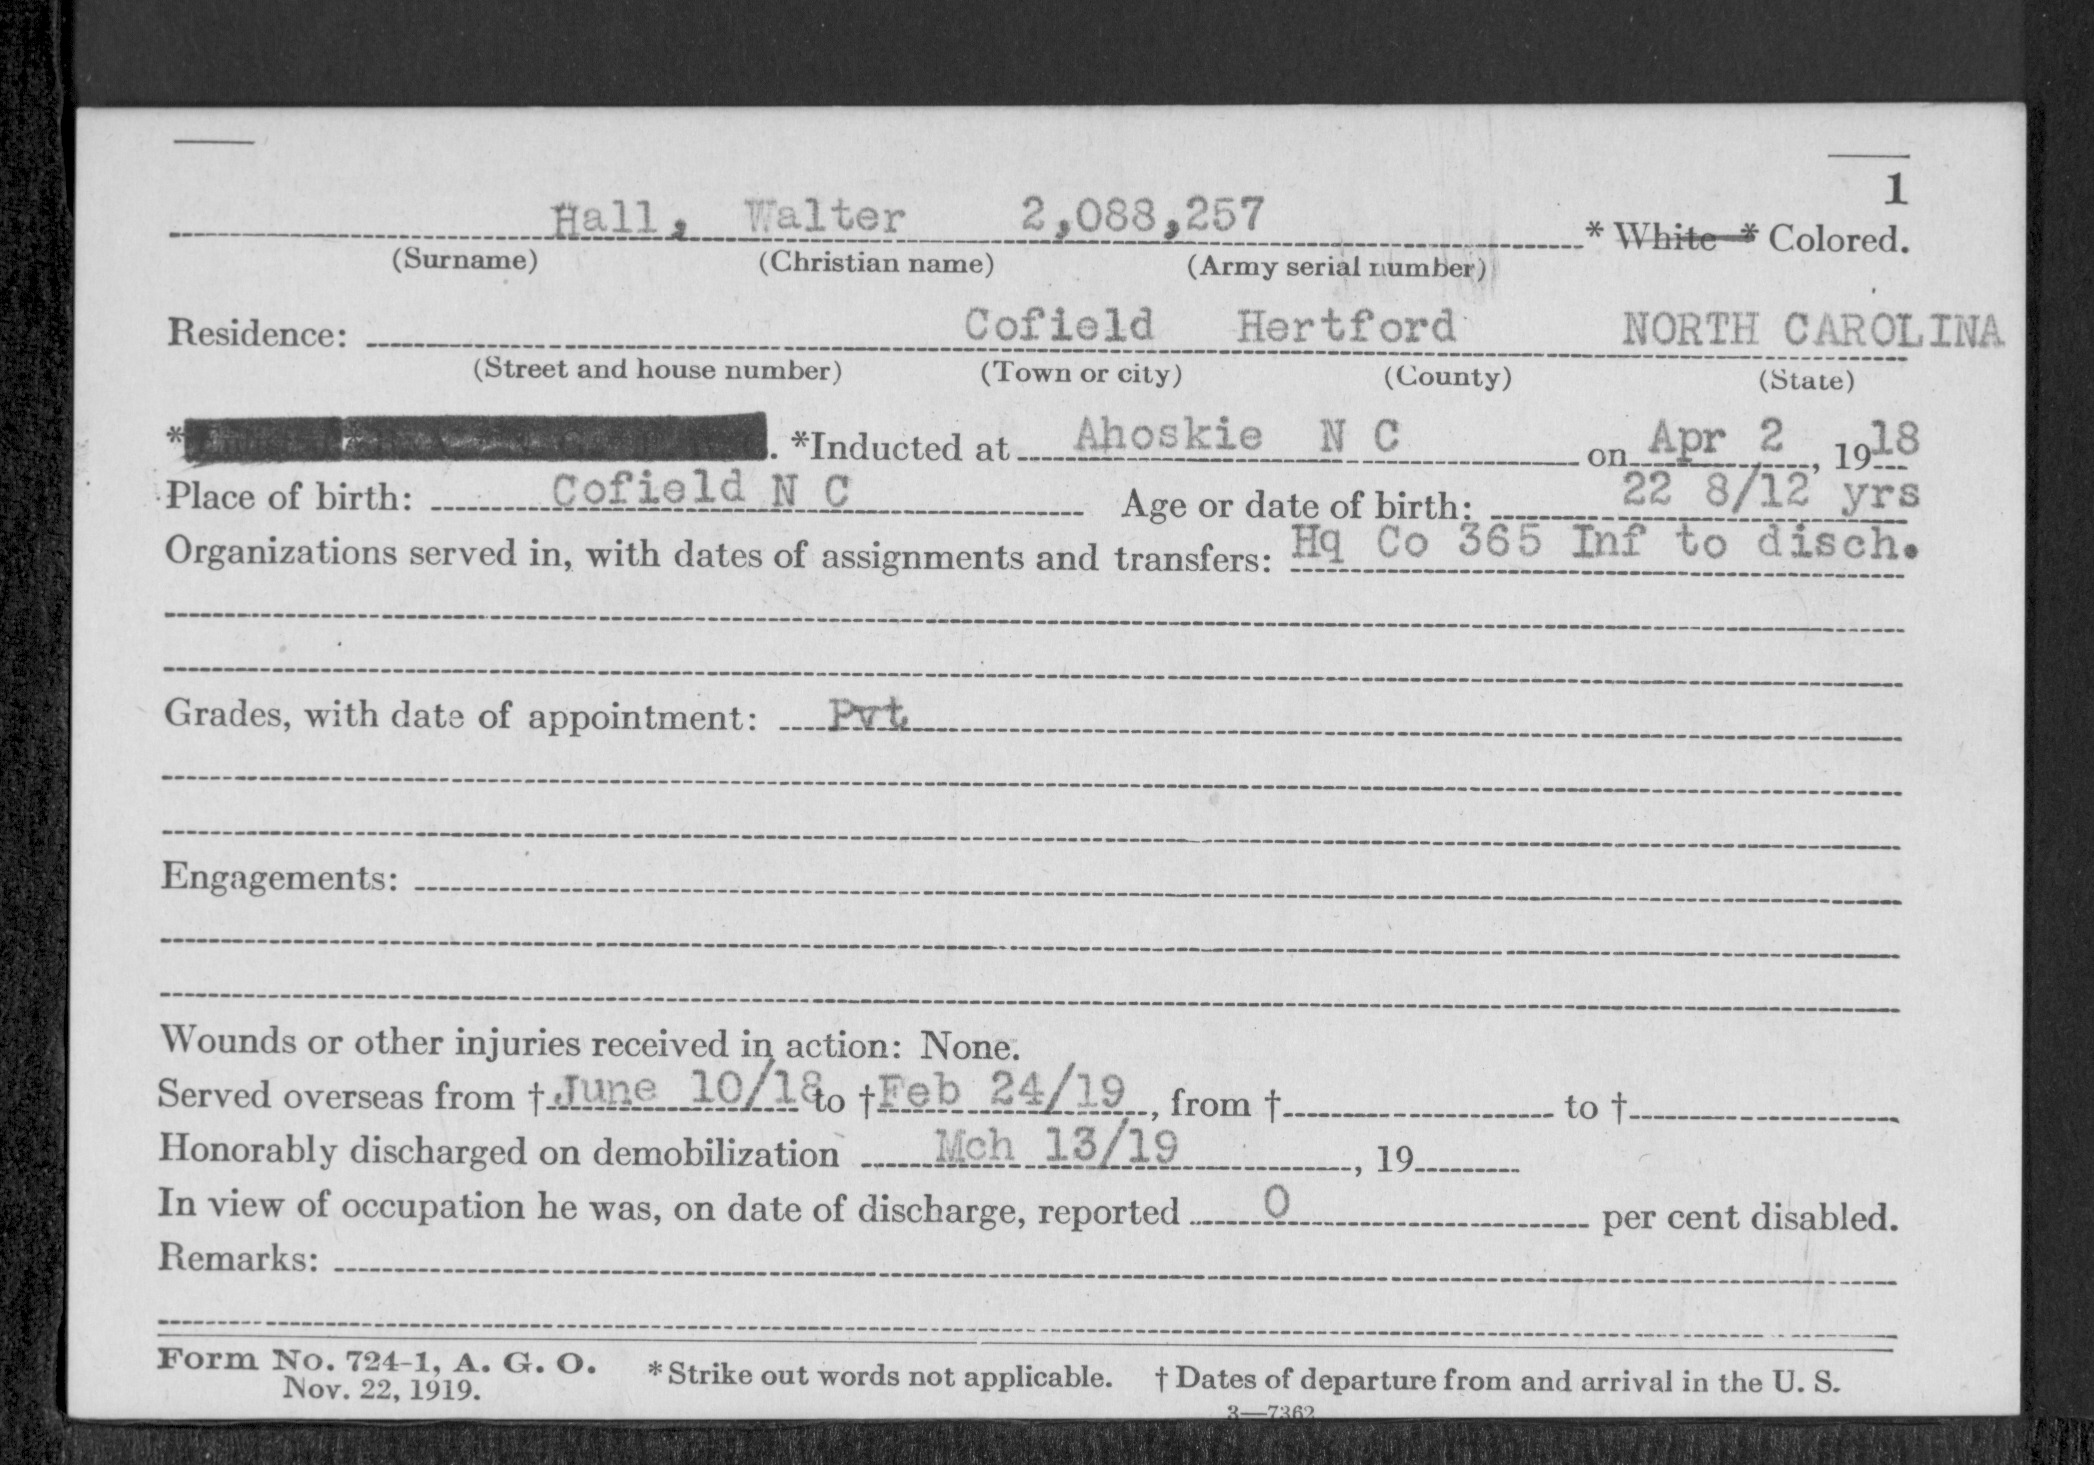 1
Hall, Walter 2,088,257 * White * Colored.
(Surname) (Christian name) (Army serial number)
Residence: Cofield Hertford NORTH CAROLINA
(Street and house number) (Town or city) (County) (State)
* . *Inducted at Ahoskie N C on Apr 2, 1918
Place of birth: Cofield N C Age or date of birth: 22 8/12 yrs
Organizations served in, with dates of assignments and transfers: Hq Co 365 Inf to disch.
Grades, with date of appointment: Pvt
Engagements:
Wounds or other injuries received in action: None.
Served overseas from † June 10/18 to † Feb 24/19, from † to †
Honorably discharged on demobilization Mch 13/19, 19
In view of occupation he was, on date of discharge, reported 0 per cent disabled.
Remarks:
Form No. 724-1, A. G. O. * Strike out words not applicable. † Dates of departure from and arrival in the U. S.
Nov. 22, 1919.
3—7362